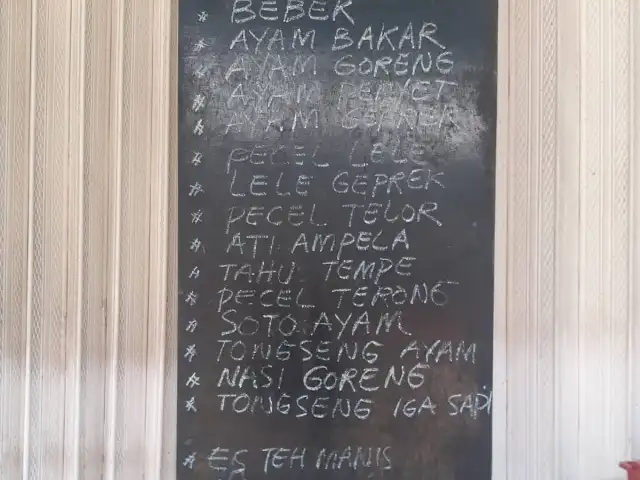 * BEBEK
* AYAM BAKAR
* AYAM GORENG
* AYAM PENYET
* AYAM GEPREK
* PECEL LELE
* LELE GEPREK
* PECEL TELOR
* ATI AMPELA
* TAHU TEMPE
* PECEL TERONG
* SOTO AYAM
* TONGSENG AYAM
* NASI GORENG
* TONGSENG IGA SAPI
* ES TEH MANIS